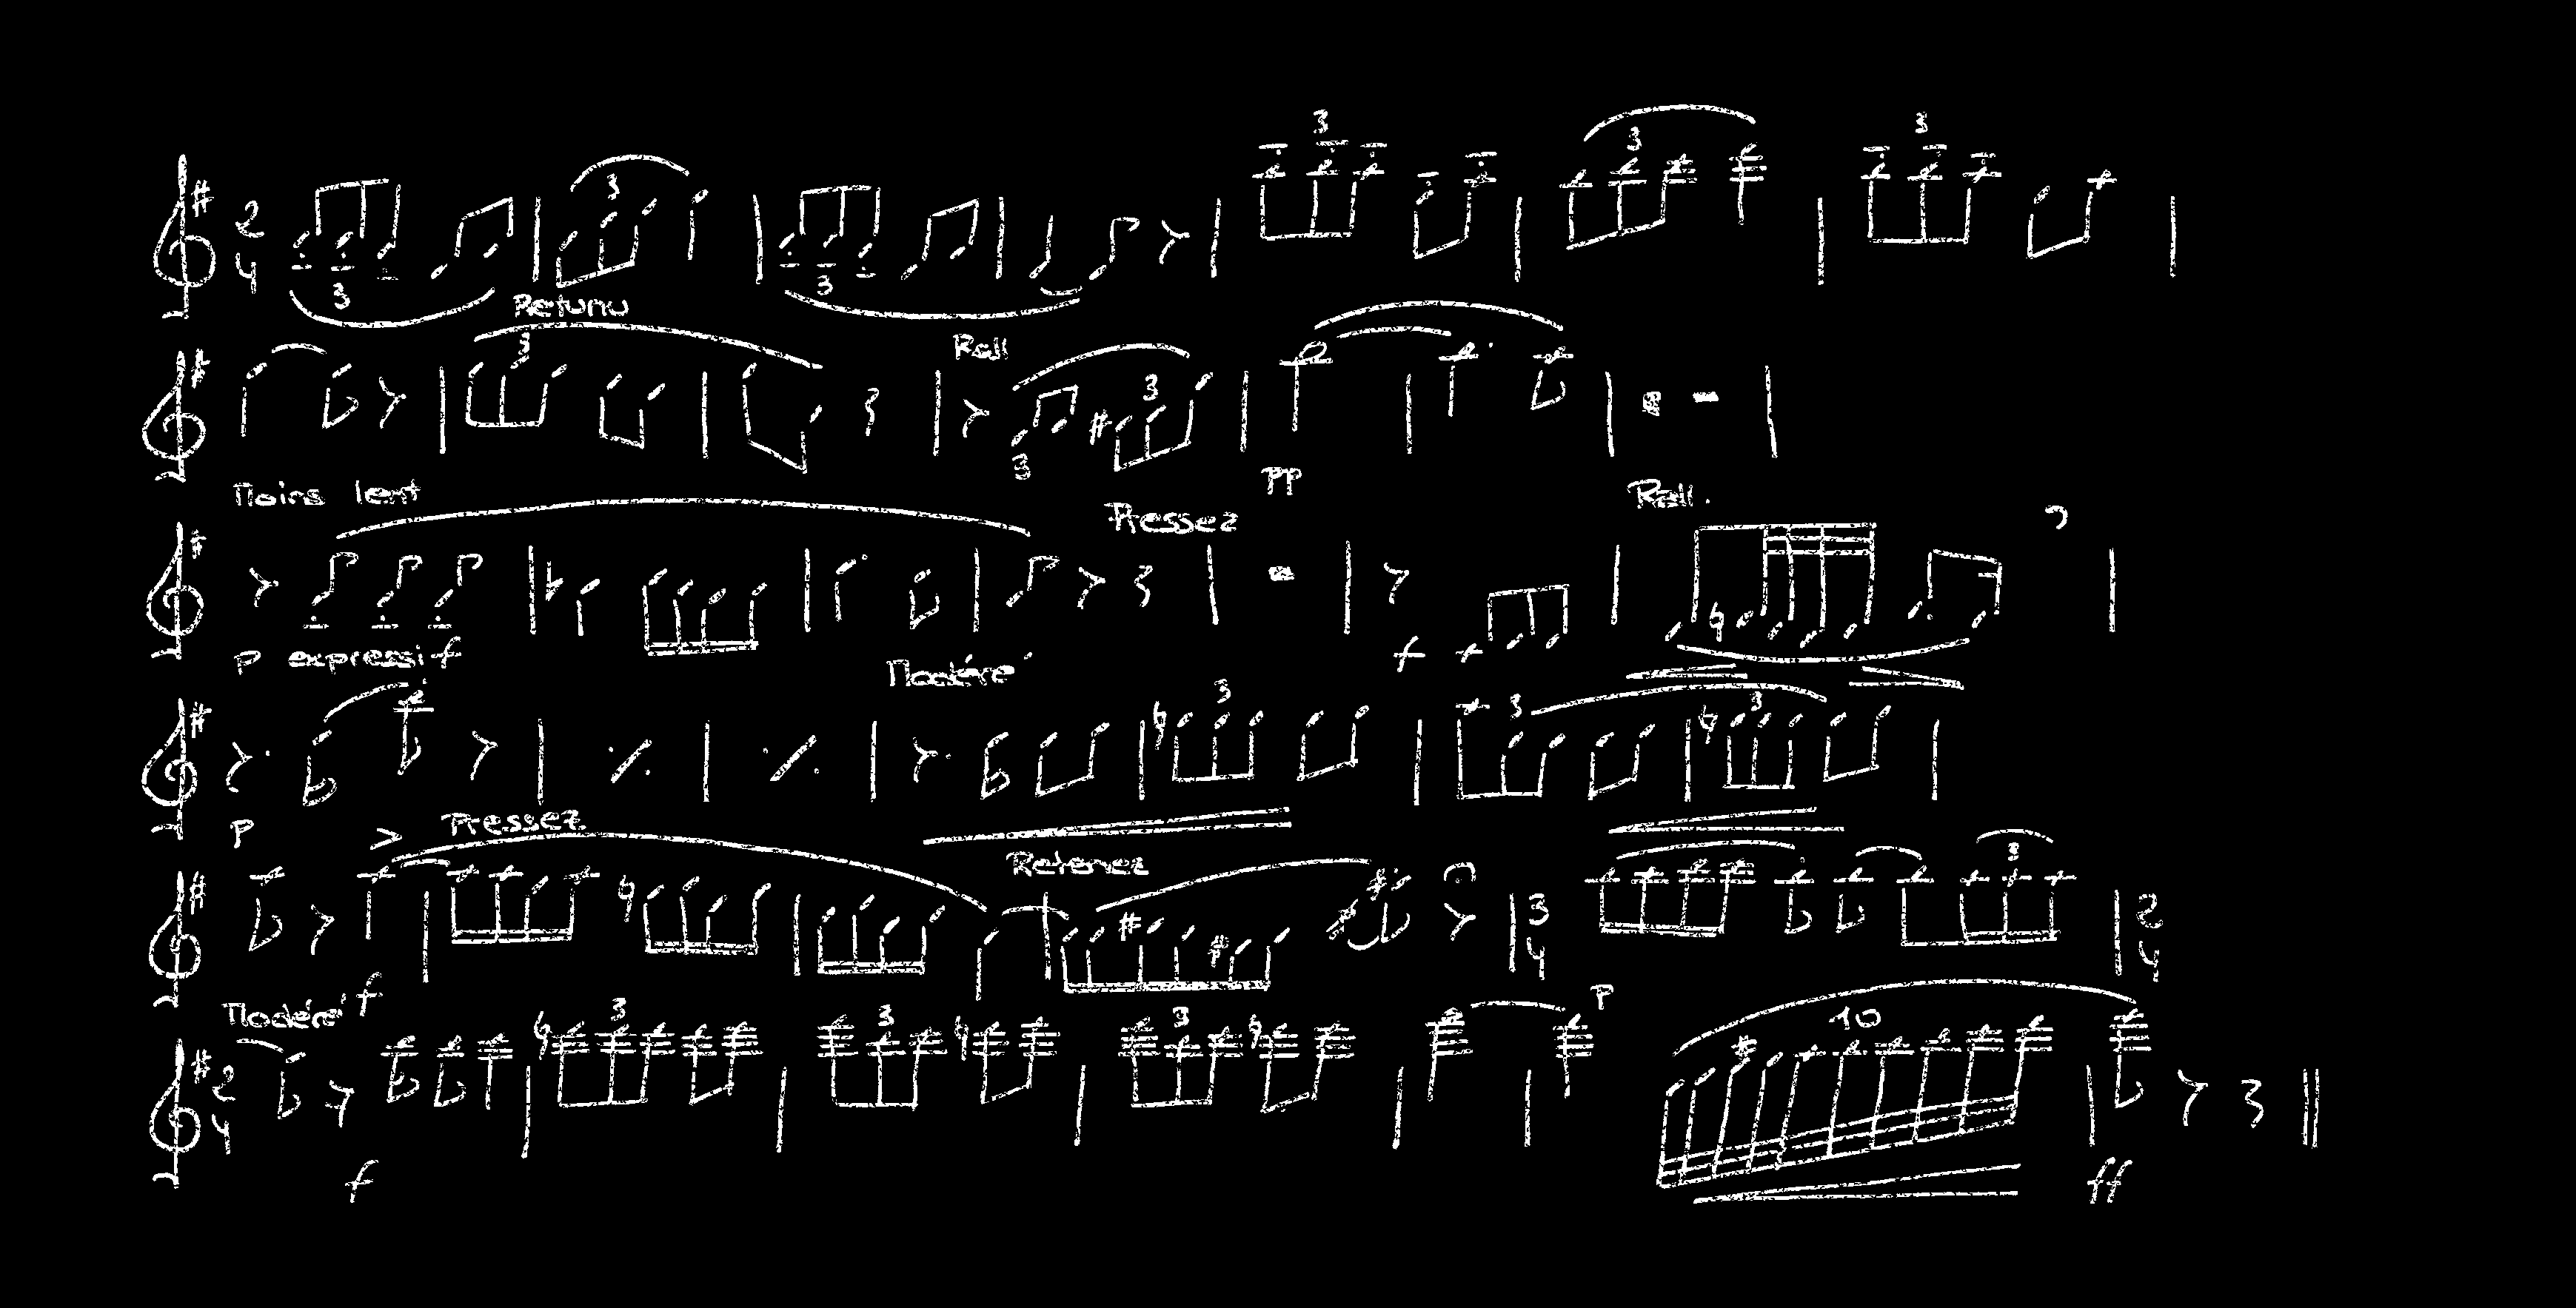 3 3 3
2 4 3 3
Retunu
3 Rall
3 3
pp
Moins lent Pressez Rall.
p expressif f
Modéré
3 3 3
p
Pressez
Retenez
3
3 4 2 4
f p
Modéré
3 3 3 10
2 4
f ff